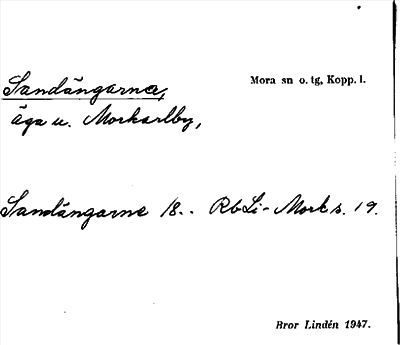 Sandängarna,
Mora sn o. tg, Kopp. l.
äga u. Morkarlby,
Sandängarne 18.. RbLi- Mork s. 19.
Bror Lindén 1947.